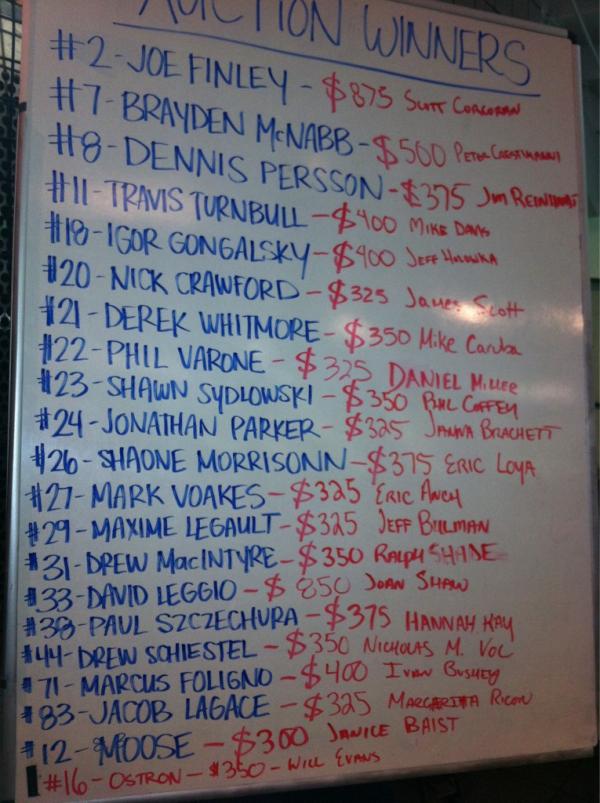 AUCTION WINNERS
#2 - JOE FINLEY - $875 SCOTT CORCORAN
#7 - BRAYDEN McNABB - $500 PETER
#8 - DENNIS PERSSON - $375 JIM REINHARDT
#11 - TRAVIS TURNBULL - $400 MIKE DAVIS
#18 - IGOR GONGALSKY - $400 JEFF
#20 - NICK CRAWFORD - $325 James Scott
#21 - DEREK WHITMORE - $350 Mike
#22 - PHIL VARONE - $325 DANIEL MILLER
#23 - SHAWN SYDLOWSKI - $350 PHIL COFFEY
#24 - JONATHAN PARKER - $325 JANNA BRACHETT
#26 - SHAONE MORRISONN - $375 ERIC LOYA
#27 - MARK VOAKES - $325 ERIC
#29 - MAXIME LEGAULT - $325 JEFF BULMAN
#31 - DREW MacINTYRE - $350 RALPH SHADE
#33 - DAVID LEGGIO - $850 JOAN SHAW
#38 - PAUL SZCZECHURA - $375 HANNAH KAY
#44 - DREW SCHIESTEL - $350 NICHOLAS M. VOL
#71 - MARCUS FOLIGNO - $400 IVAN BUSHEY
#83 - JACOB LAGACE - $325 MARGARITA RICON
#12 - MOOSE - $300 JANICE BAIST
#16 - OSTRON - $350 - WILL EVANS